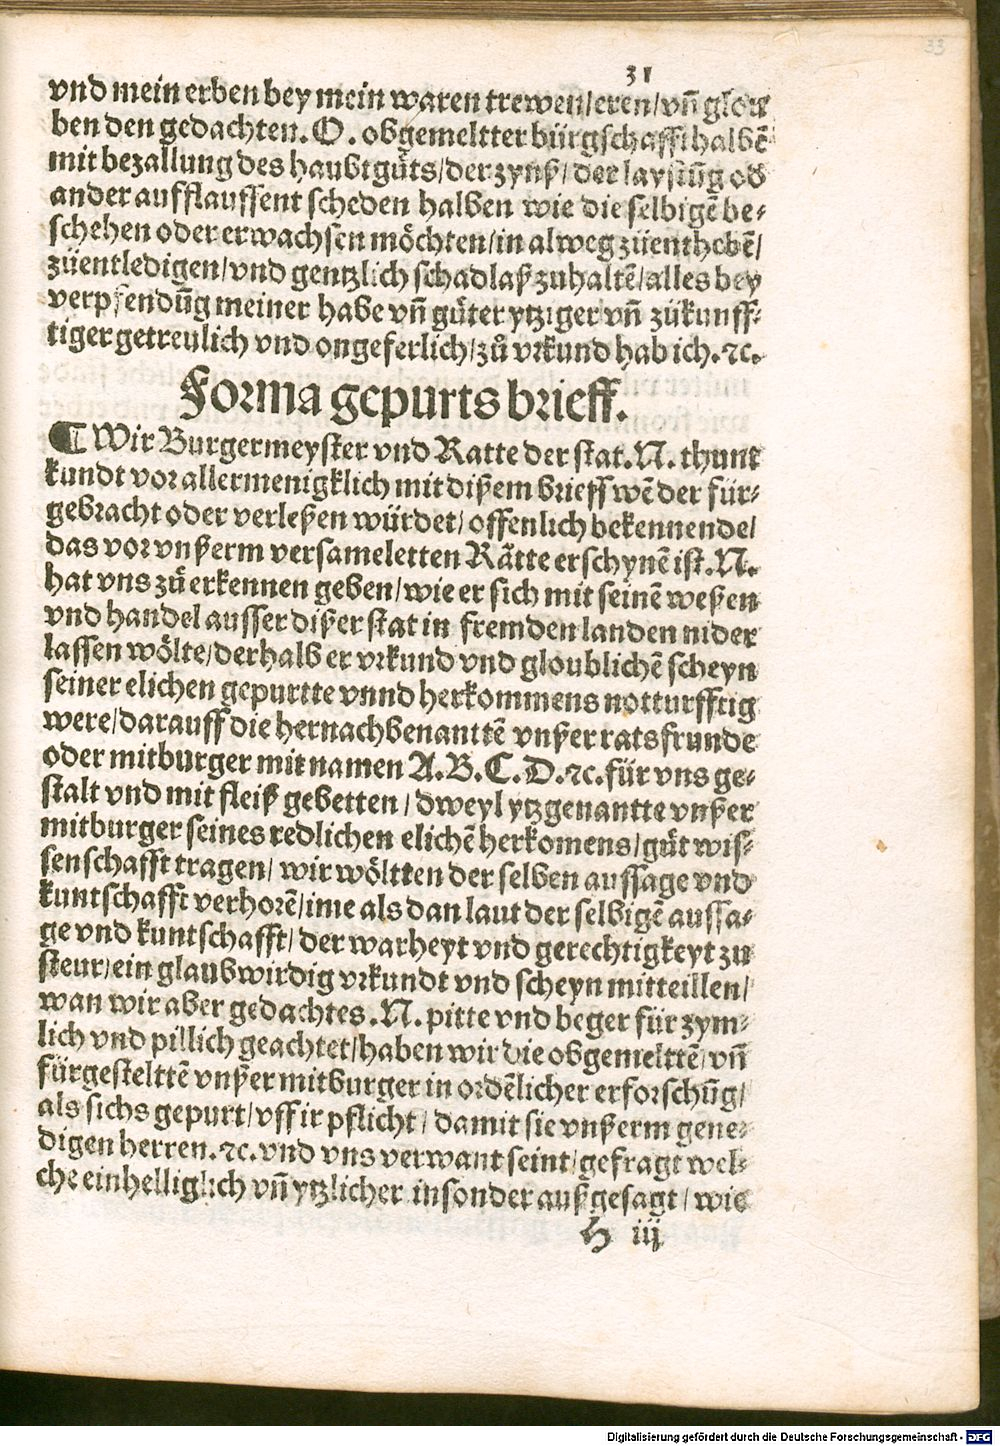 33
31
vnd mein erben bey mein waren trewen/eren/vñ glou
ben den gedachten. O. obgemeltter bürgschafft halbē
mit bezallung des haubtgůts/der zynß/ der laystūg od
ander aufflauffent scheden halben wie die selbigē be⸗
schehen oder erwachsen möchten/in alweg zůenthebē/
zůentledigen/vnd gentzlich schadlaß zuhaltē/alles bey
verpfendūg meiner habe vñ gůter ytziger vñ zůkunff⸗
tiger getreulich vnd ongeferlich/zů vrkund hab ich.⁊c.
Forma gepurts brieff.
¶ Wir Burgermeyster vnd Ratte der stat. N. thunt
kundt vor allermenigklich mit dißem brieff wē der für⸗
gebracht oder verleßen würdet/ offenlich bekennende/
das vor vnßerm versameletten Rätte erschynē ist. N.
hat vns zů erkennen geben/wie er sich mit seinē weßen
vnd handel ausser dißer stat in fremden landen nider
lassen wölte/derhalb er vrkund vnd gloublichē scheyn
seiner elichen gepurtte vnnd herkommens notturfftig
were/darauff die hernachbenanttē vnßer ratsfrunde
oder mitburger mit namen A. B. C. D. ⁊c. für vns ge⸗
stalt vnd mit fleiß gebetten / dweyl ytzgenantte vnßer
mitburger seines redlichen elichē herkomens/gůt wis⸗
senschafft tragen/ wir wöltten der selben aussage vnd
kuntschafft verhorē/ime als dan laut der selbigē aussa⸗
ge vnd kuntschafft/ der warheyt vnd gerechtigkeyt zu
steur/ein glaubwirdig vrkundt vnd scheyn mitteillen/
wan wir aber gedachtes. N. pitte vnd beger für zym⸗
lich vnd pillich geachtet/haben wir die obgemelttē/vñ
fürgestelttē vnßer mitburger in ordēlicher erforschūg/
als sichs gepurt/vff ir pflicht / damit sie vnßerm gene⸗
digen herren. ⁊c. vnd vns verwant seint/gefragt wel⸗
che einhelliglich vñ ytzlicher insonder außgesagt/ wie
H iij
Digitalisierung gefördert durch die Deutsche Forschungsgemeinschaft - DFG